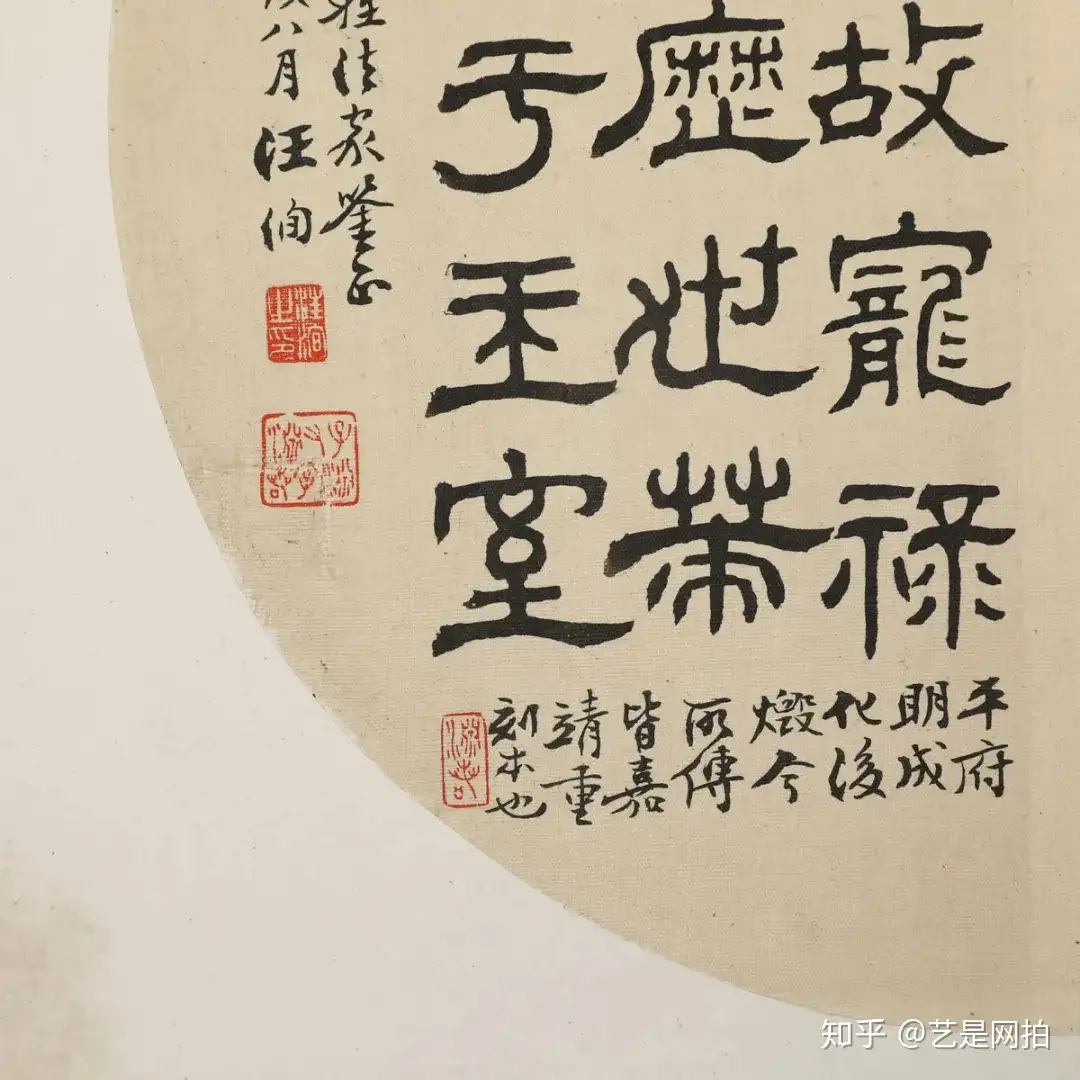 故寵祿
歷世榮
于王室
平府
明成
化後
燬今
所傳
皆嘉
靖重
刻本也
雅法家鑒正
八月汪洵
汪洵之印
知乎 @艺是网拍